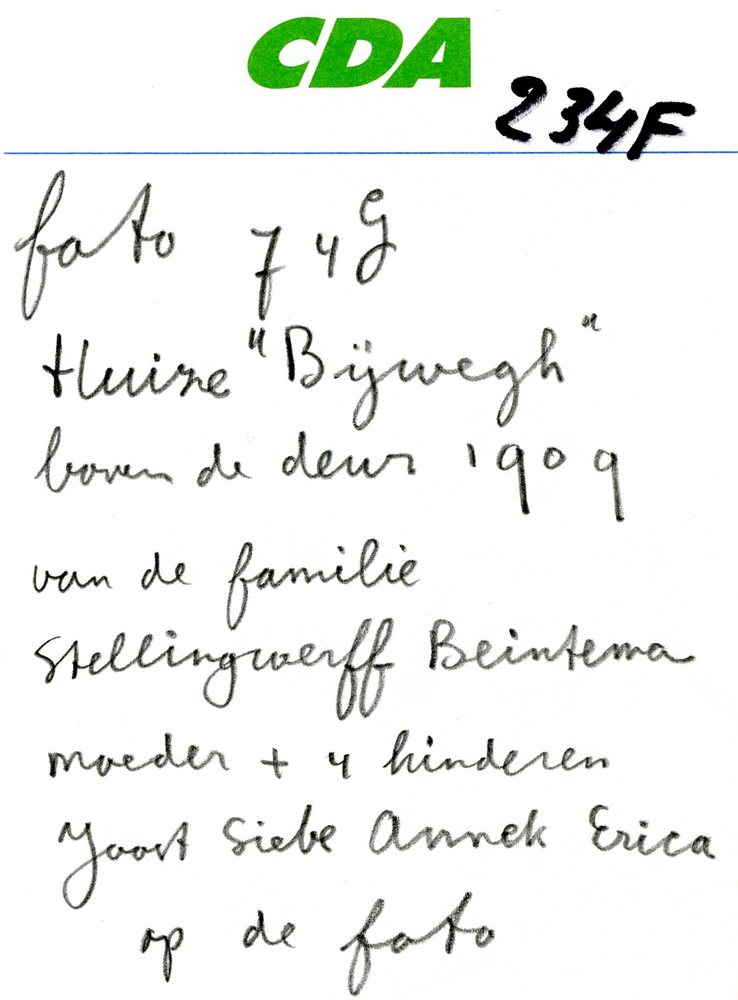 CDA
234F
foto 74G
Huize "Bijwegh"
boven de deur 1909
van de familie
Stellingwerff Beintema
moeder + 4 kinderen
Joost Siebe Annek Erica
op de foto